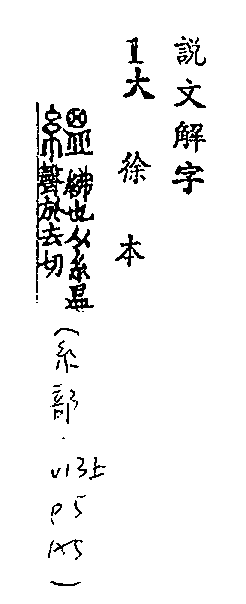 説文解字
1大徐本
縕
紼也从糸𥁕
聲於云切
(糸部．V13上 P5 A5)